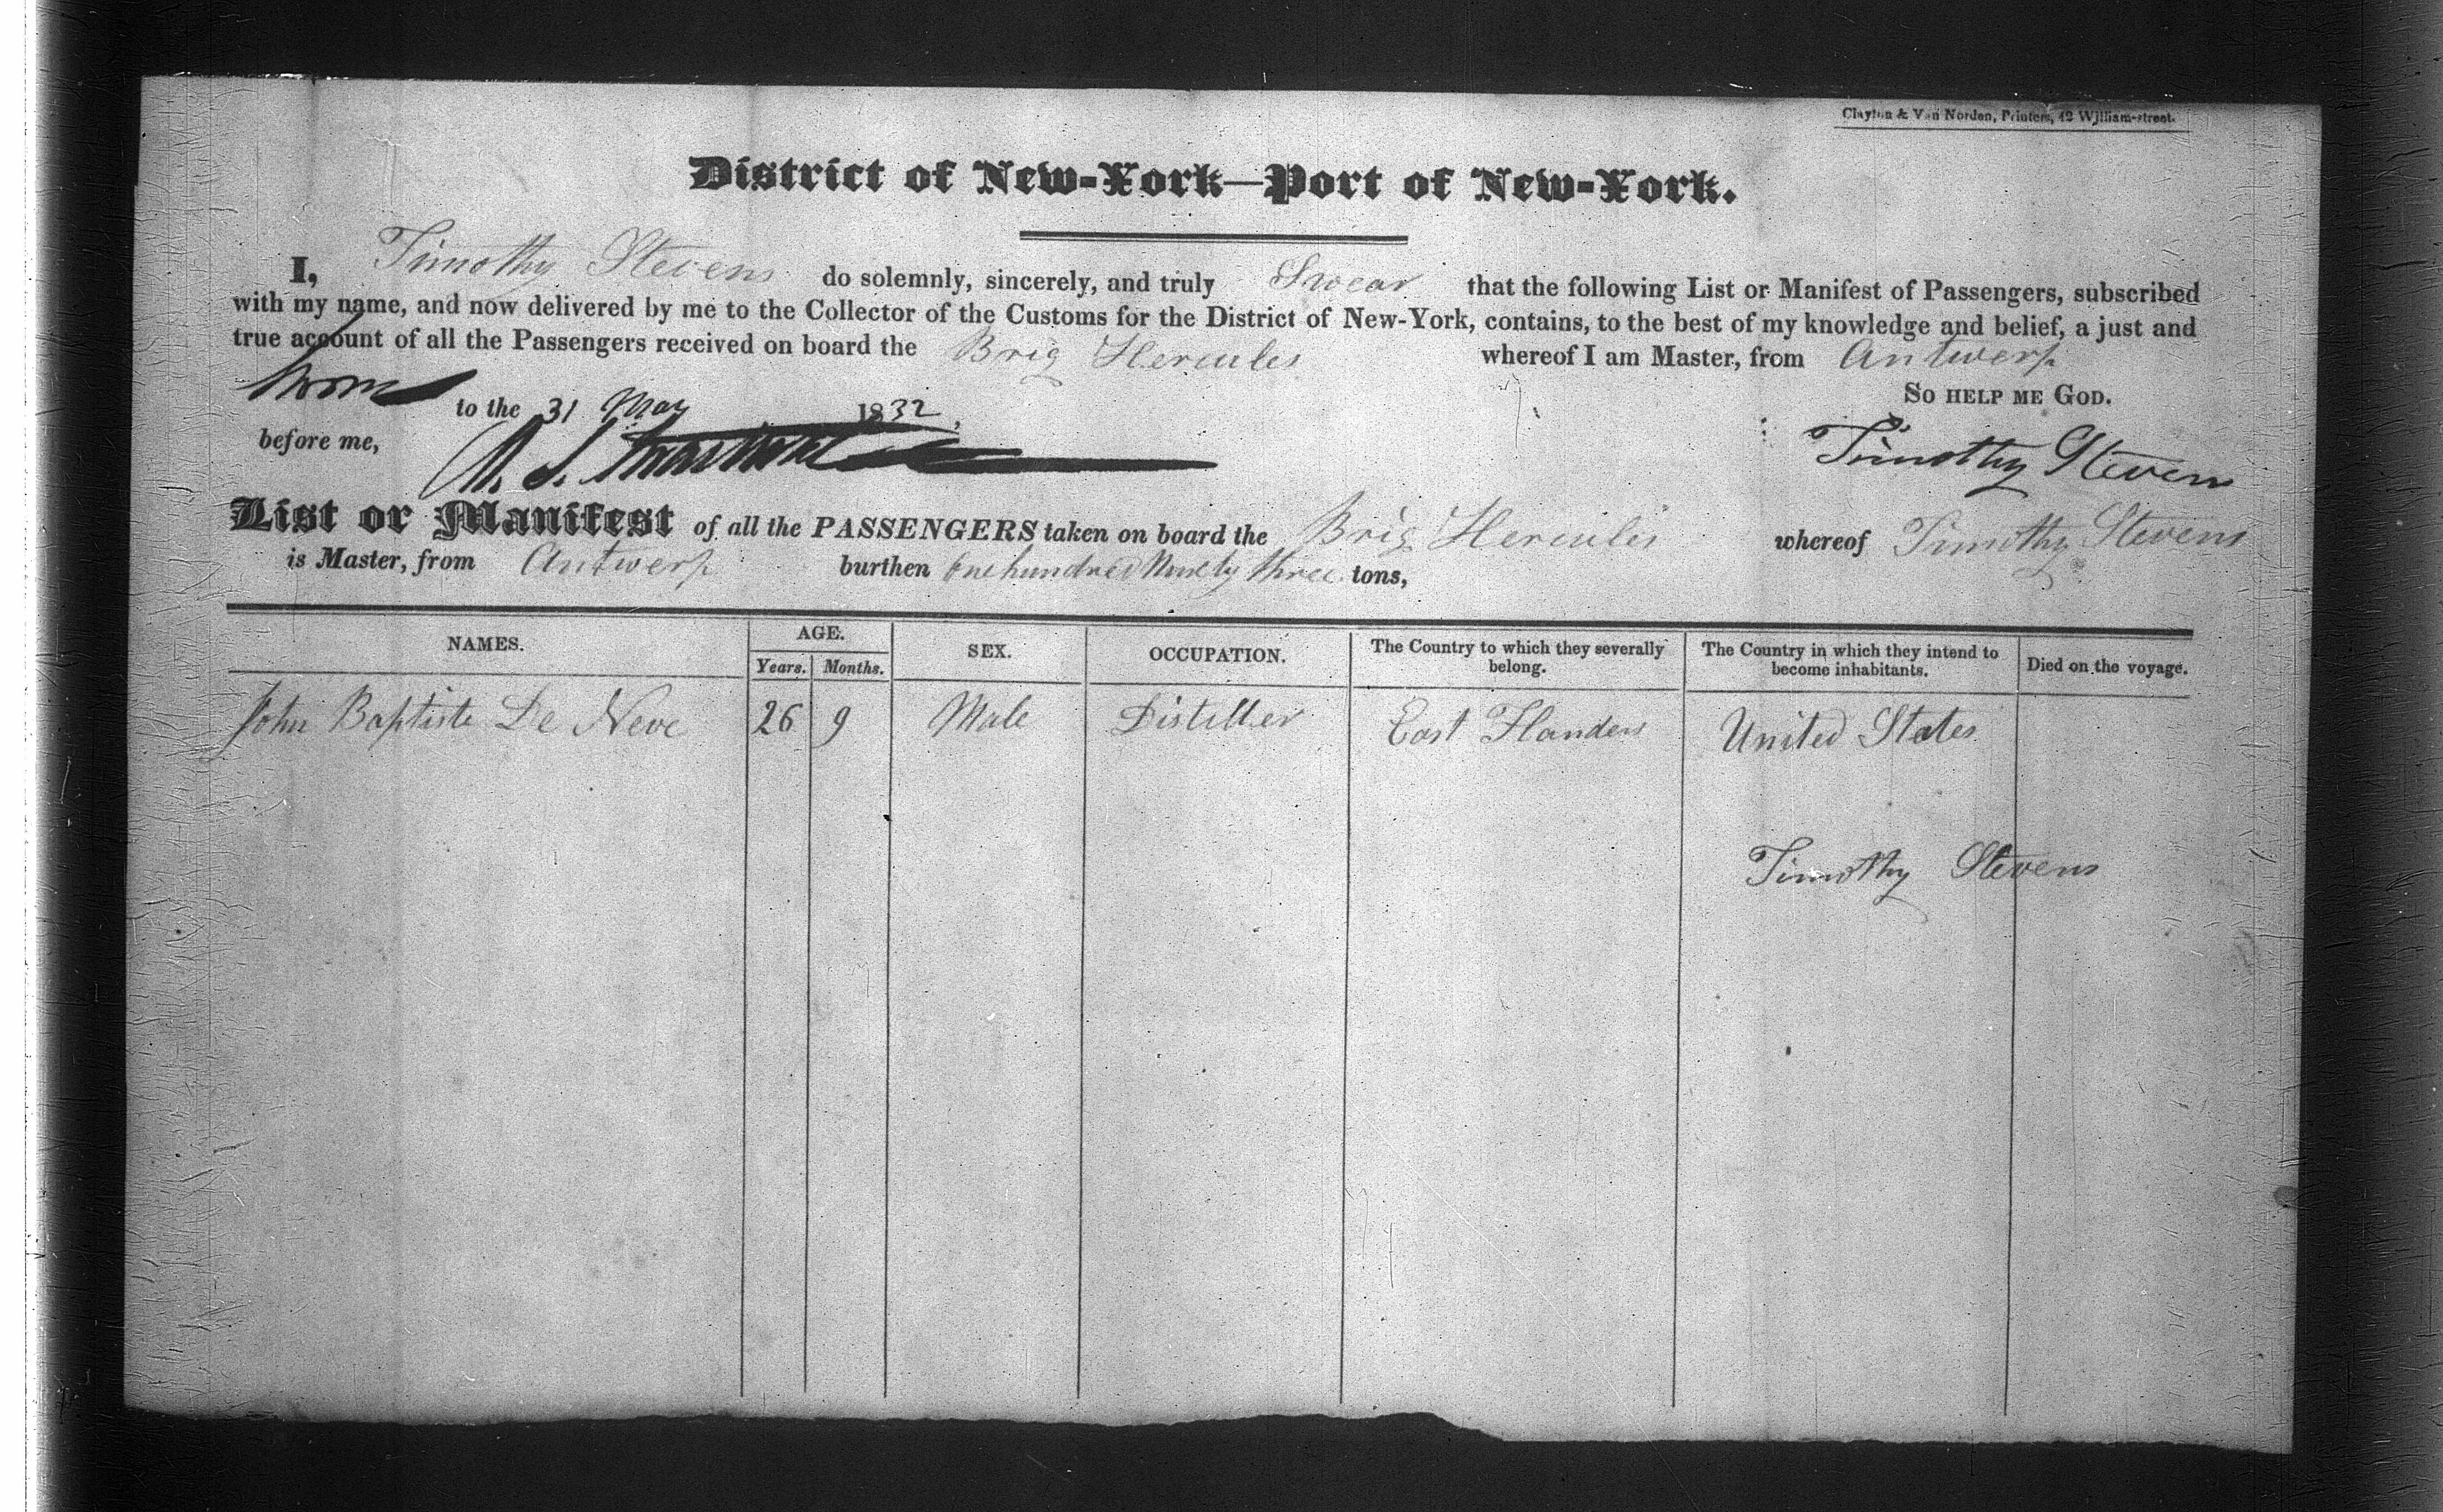 Clayton & Van Norden, Printers, 42 William-street.
District of New-York—Port of New-York.
I, Timothy Stevens do solemnly, sincerely, and truly Swear that the following List or Manifest of Passengers, subscribed
with my name, and now delivered by me to the Collector of the Customs for the District of New-York, contains, to the best of my knowledge and belief, a just and
true account of all the Passengers received on board the Brig Hercules whereof I am Master, from Antwerp
Sworn to the 31 May 1832, So help me God.
before me, Timothy Stevens
List or Manifest of all the PASSENGERS taken on board the Brig Hercules whereof Timothy Stevens
is Master, from Antwerp burthen One hundred Ninety three tons,
NAMES. AGE. Years. Months. SEX. OCCUPATION. The Country to which they severally belong. The Country in which they intend to become inhabitants. Died on the voyage.
John Baptiste De Neve 26 9 Male Distiller East Flanders United States
Timothy Stevens